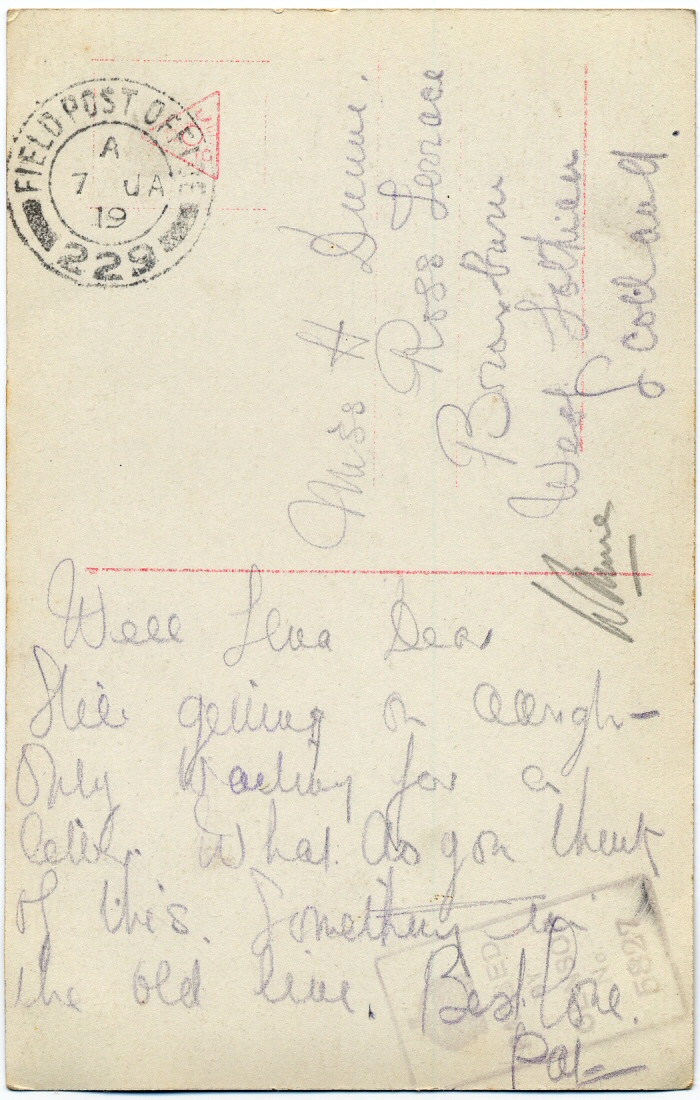 FIELD POST OFFICE
A
7 JA
19
229
Miss H Dunn.
Ross Terrace
Broxburn
West Lothian
Scotland
Well Lena Dear
Still getting on alright
Only waiting for a
letter. What do you think
of this. Something in
the old line. Best Love.
Pat
PASSED
BY
CENSOR
No 5827